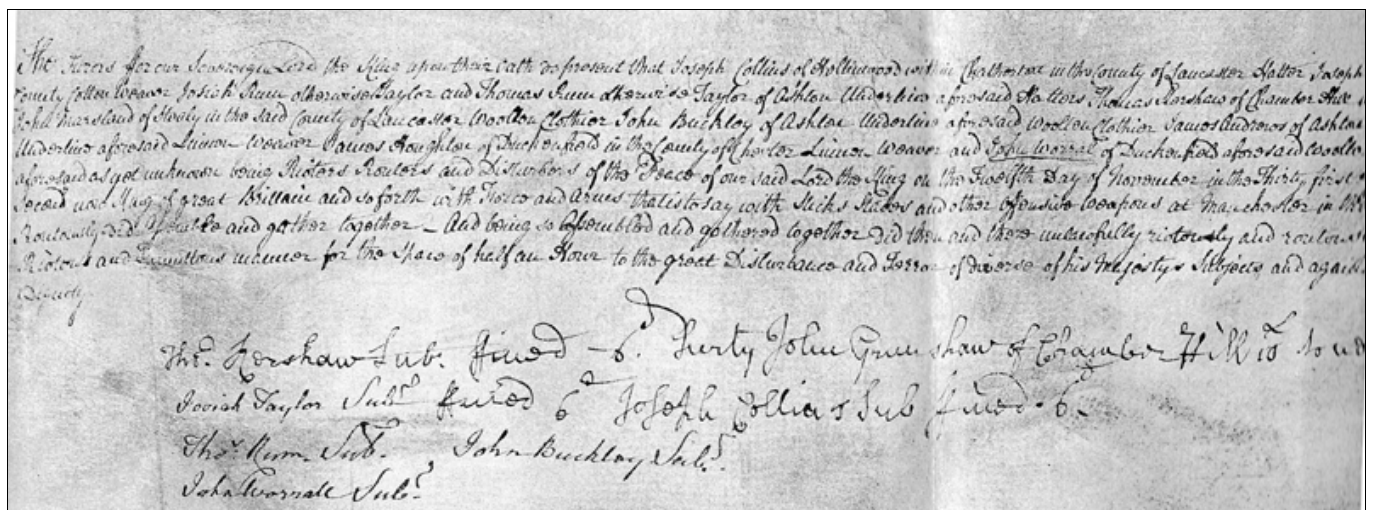 The Jurors for our Sovereign Lord the King upon their Oath do present that Joseph Collins of Hollinwood within Chatherton in the County of Lancaster Hatter Joseph
County Cotton Weaver Josiah Rum otherwise Taylor and Thomas Rum otherwise Taylor of Ashton Underline aforesaid Hatters Thomas Kershaw of Chamber Hill
John Marsland of in the said County of Lancaster Woollen Clothier John Buckley of Ashton Underline aforesaid Woollen Clothier James Andrews of Ashton
Underline aforesaid Linnen Weaver James Houghton of Duckenfield in the County of Chester Linnen Weaver and John Worral of Duckenfield aforesaid Woollen
aforesaid as yet unknown being Rioters Routers and Disturbers of the Peace of our said Lord the King on the Twelfth Day of November in the Thirty first
Second now King of great Brittain and so forth with Force and Arms that is to say with Sticks Staves and other offensive Weapons at Manchester in the
Routously did Assemble and gather together – And being so Assembled and gathered together did then and there unlawfully riotously and routous
Riotous and Tumultous manner for the Space of half an Hour to the great Disturbance and Terror of diverse of his Majestys Subjects and against
Dignity
Tho.s Kershaw Sub. fined – 6.d John Grimshaw of Chamber Hill to
Josiah Taylor Sub.t fined 6.d Joseph Collins Sub fined – 6.d
Tho.s Rum. Sub.t John Buckley Sub.t
John Worrall Sub.t